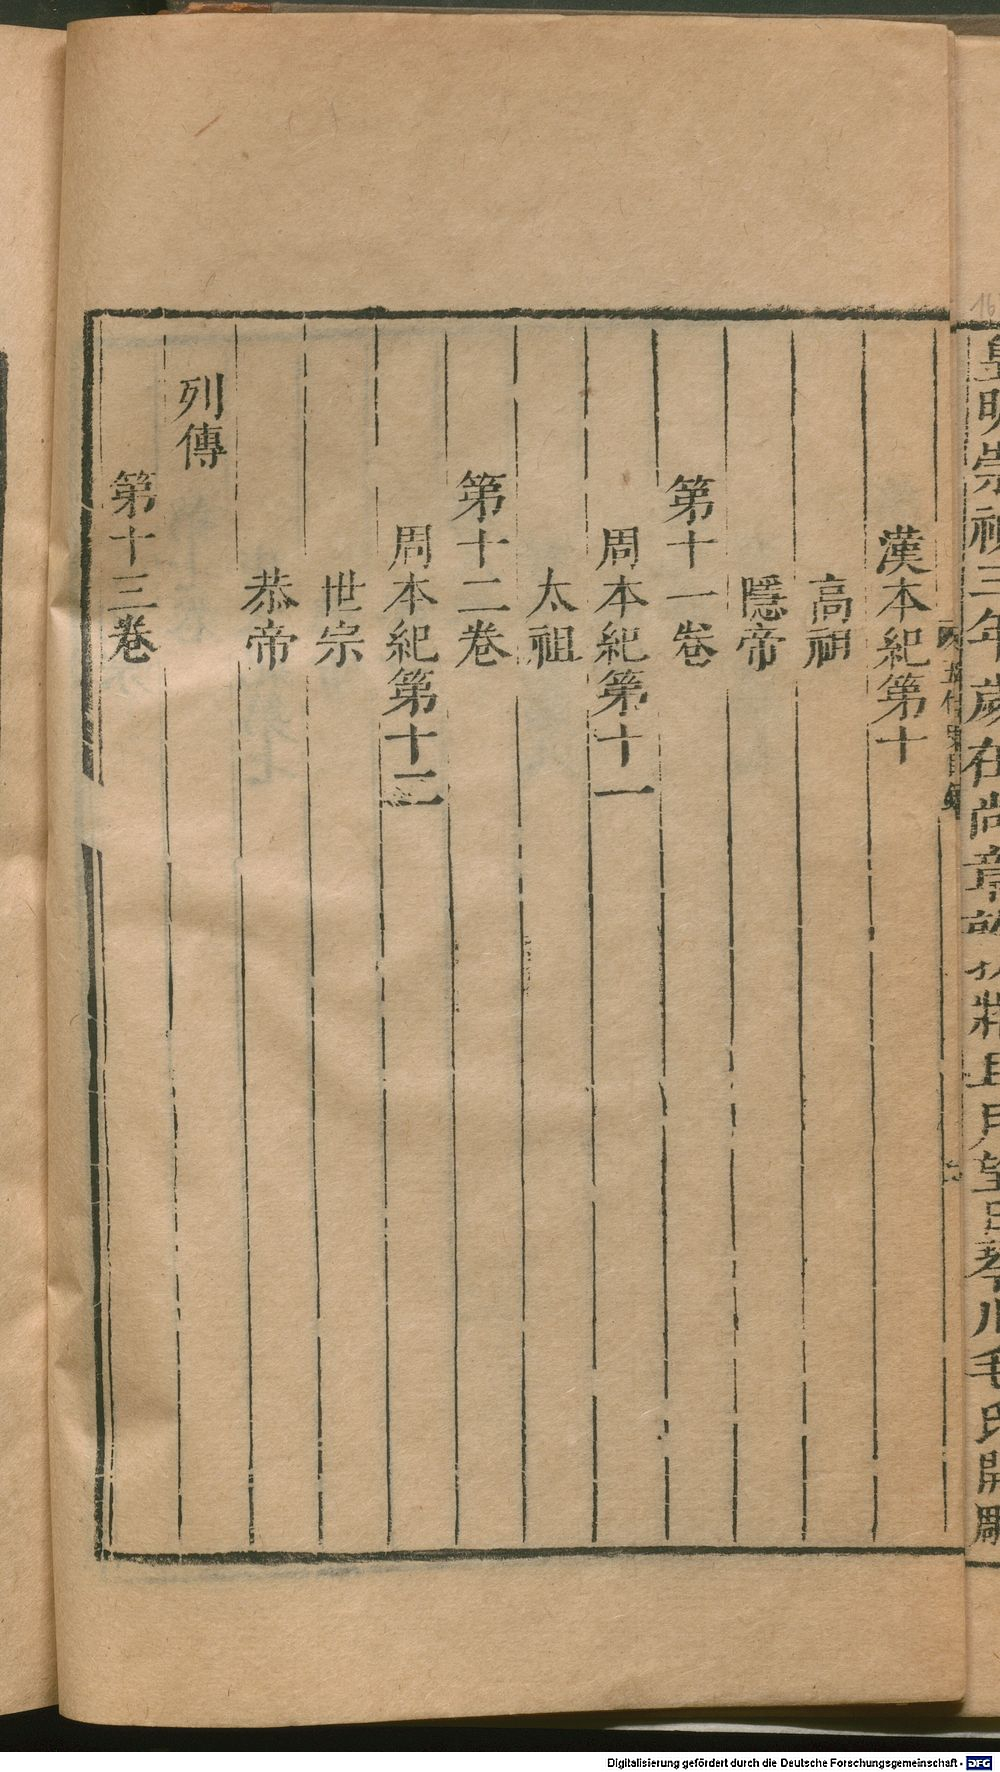 皇明崇禎三年歲在尚章
月望
毛氏開雕
五代史目錄
漢本紀第十
高祖
隱帝
第十一卷
周本紀第十一
太祖
第十二卷
周本紀第十二
世宗
恭帝
列傳
第十三卷
16
Digitalisierung gefördert durch die Deutsche Forschungsgemeinschaft - DFG